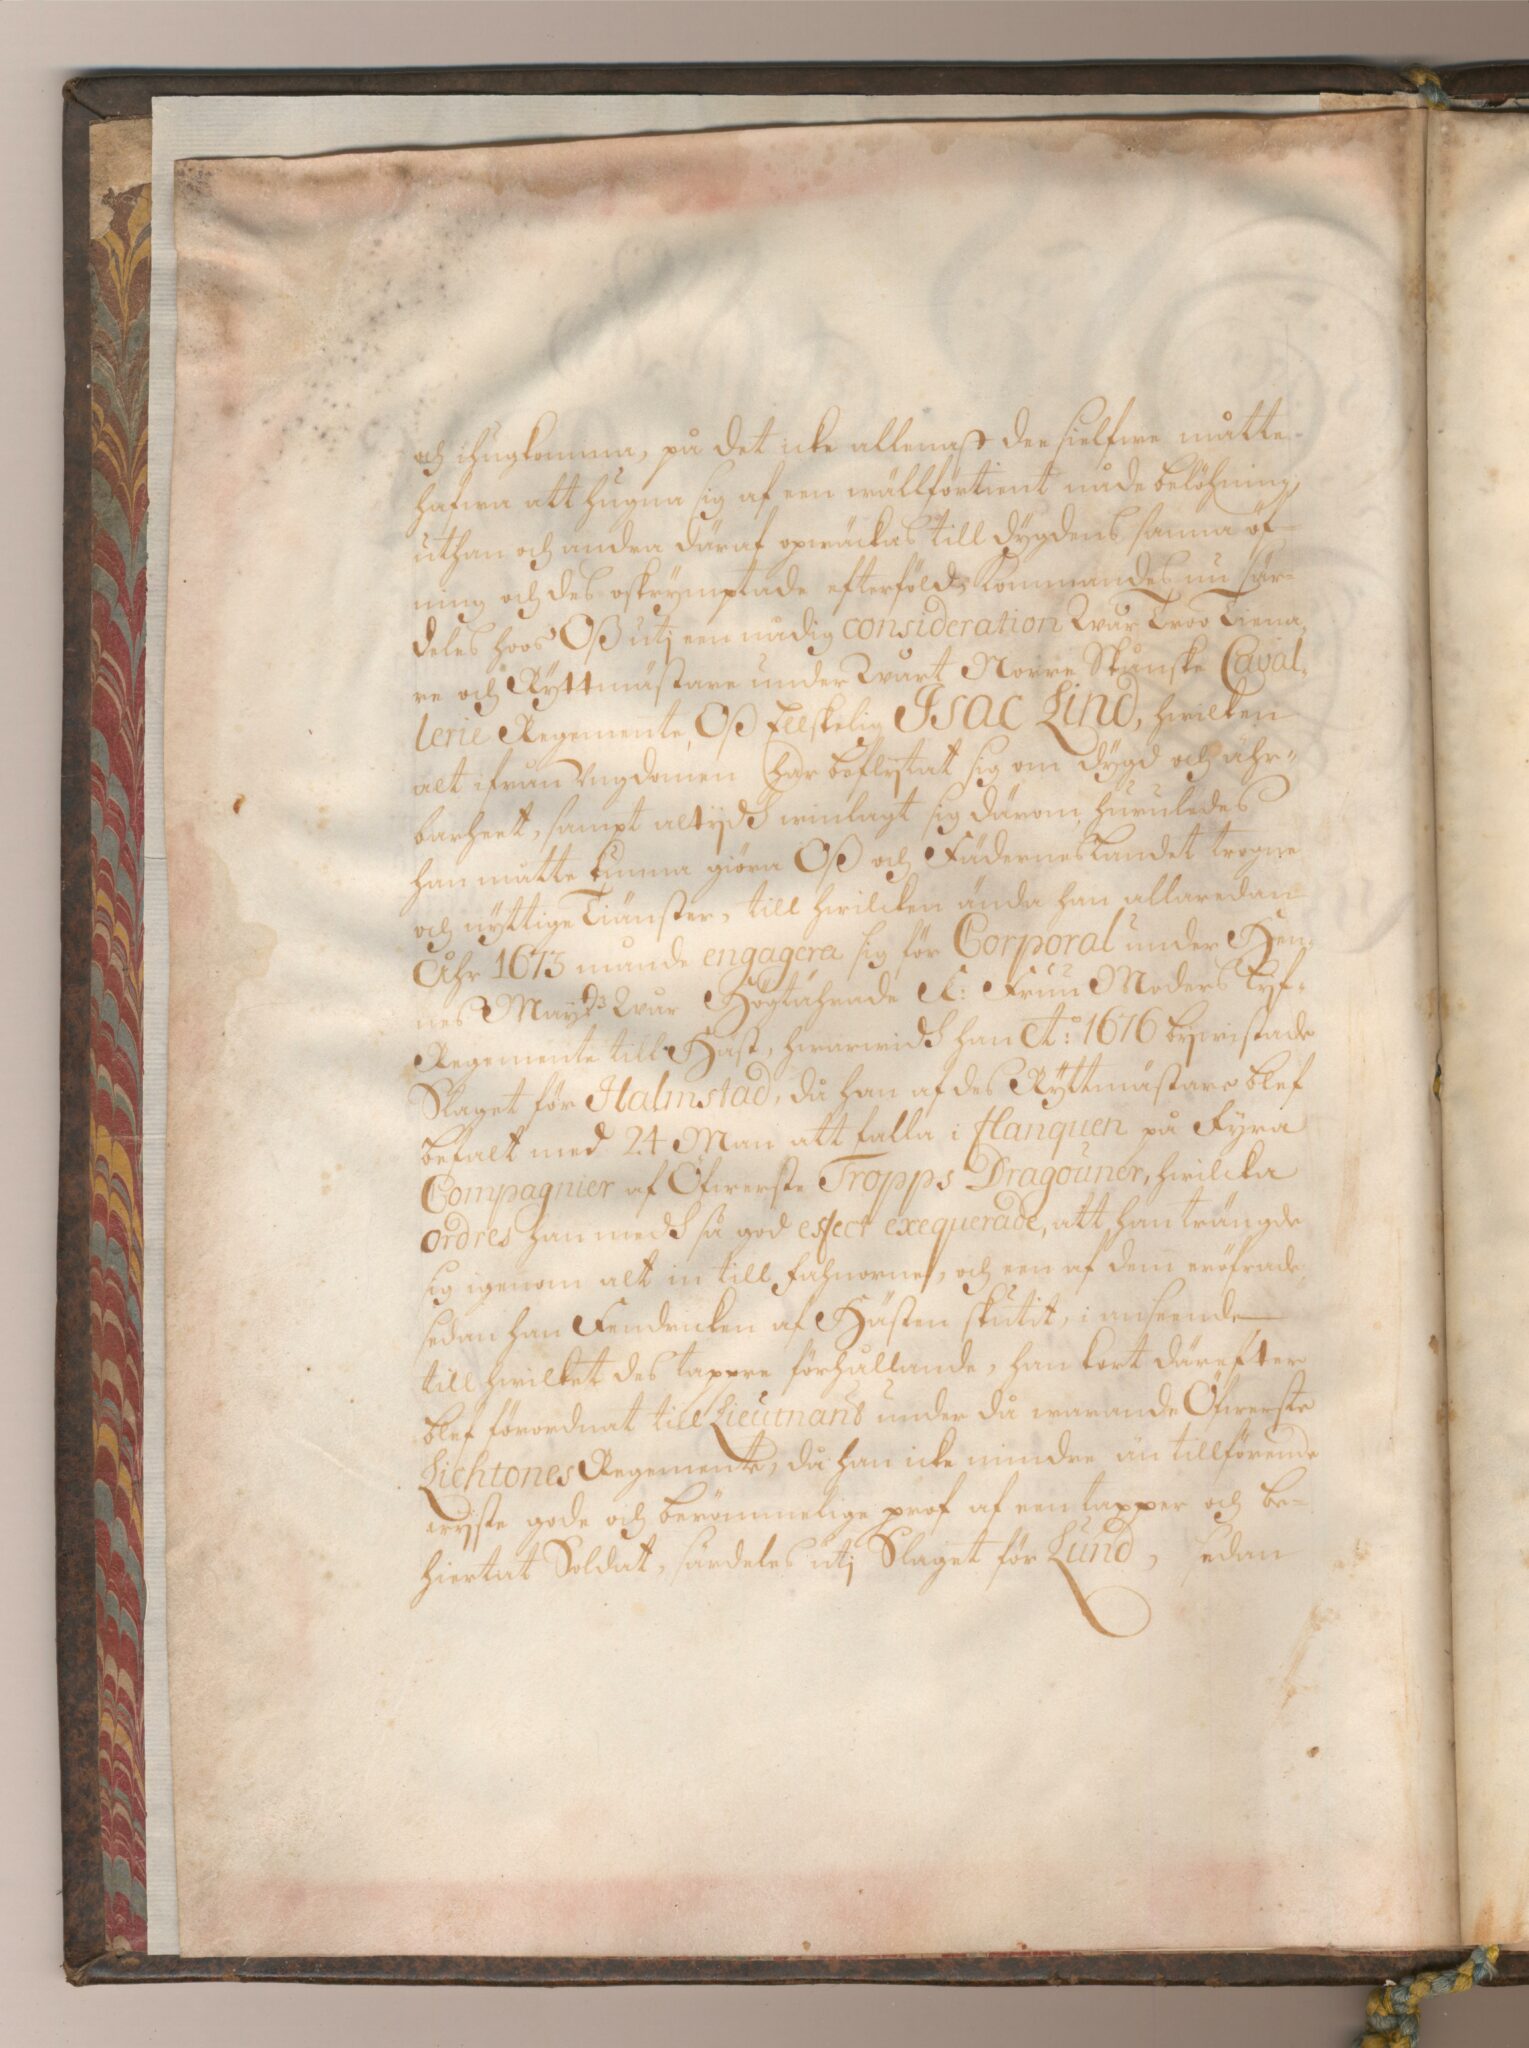 och ihugkomma, på det icke allenast dee sielfwe måtte
hafwa att hugna sig af een wällförtient nåde belöhning,
uthan och andra däraf opwäckas till dygdens sanna öf-
ning och des oskrymptade efterföld, kommandes nu sär-
deles hoos Oß utj een nådig consideration Wår Troo Tiena-
re och Ryttmästare under Wårt Norre Skånske Caval-
lerie Regemente, Oß Elskelig Isac Lind, hwilken
alt ifrån Ungdomen har beflytat sig om dygd och ähr-
barheet, sampt altydh winlagt sig därom, huruledes
han måtte kunna giöra Oß och Fäderneslandet trogne
och nyttige Tiänster, till hwilcken ända han allaredan
Åhr 1673 munde engagera sig för Corporal under Hen-
nes May:tz Wår Högtährade K: Fru Moders Lyf-
Regemente till Häst, hwarwidh han A:o 1676 bywistade
Slaget för Halmstad, då han af des Ryttmästare blef
befalt med 24 Man att falla i flanquen på Fyra
Compagnier af Öfwerste Tropps Dragouner, hwilcka
ordres han medh så god effect exequerade, att han trängde
sig igenom alt in till fahnorne, och een af dem eröfrade
sedan han Fendricken af Hästen skutit, i anseende
till hwilket des tappre förhållande, han kort därefter
blef förordnat till Lieutnant under då warande Öfwerste
Lichtones Regemente, då han icke mindre än tillförende
wyste gode och berömmelige prof af een tapper och be-
hiertat Soldat, särdeles utj Slaget för Lund, sedan